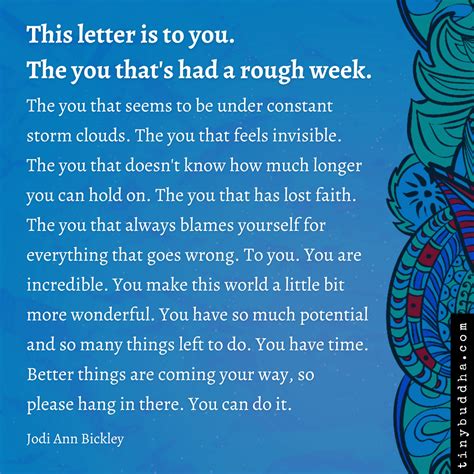 This letter is to you.
The you that's had a rough week.
The you that seems to be under constant
storm clouds. The you that feels invisible.
The you that doesn't know how much longer
you can hold on. The you that has lost faith.
The you that always blames yourself for
everything that goes wrong. To you. You are
incredible. You make this world a little bit
more wonderful. You have so much potential
and so many things left to do. You have time.
Better things are coming your way, so
please hang in there. You can do it.
Jodi Ann Bickley
tinybuddha.com